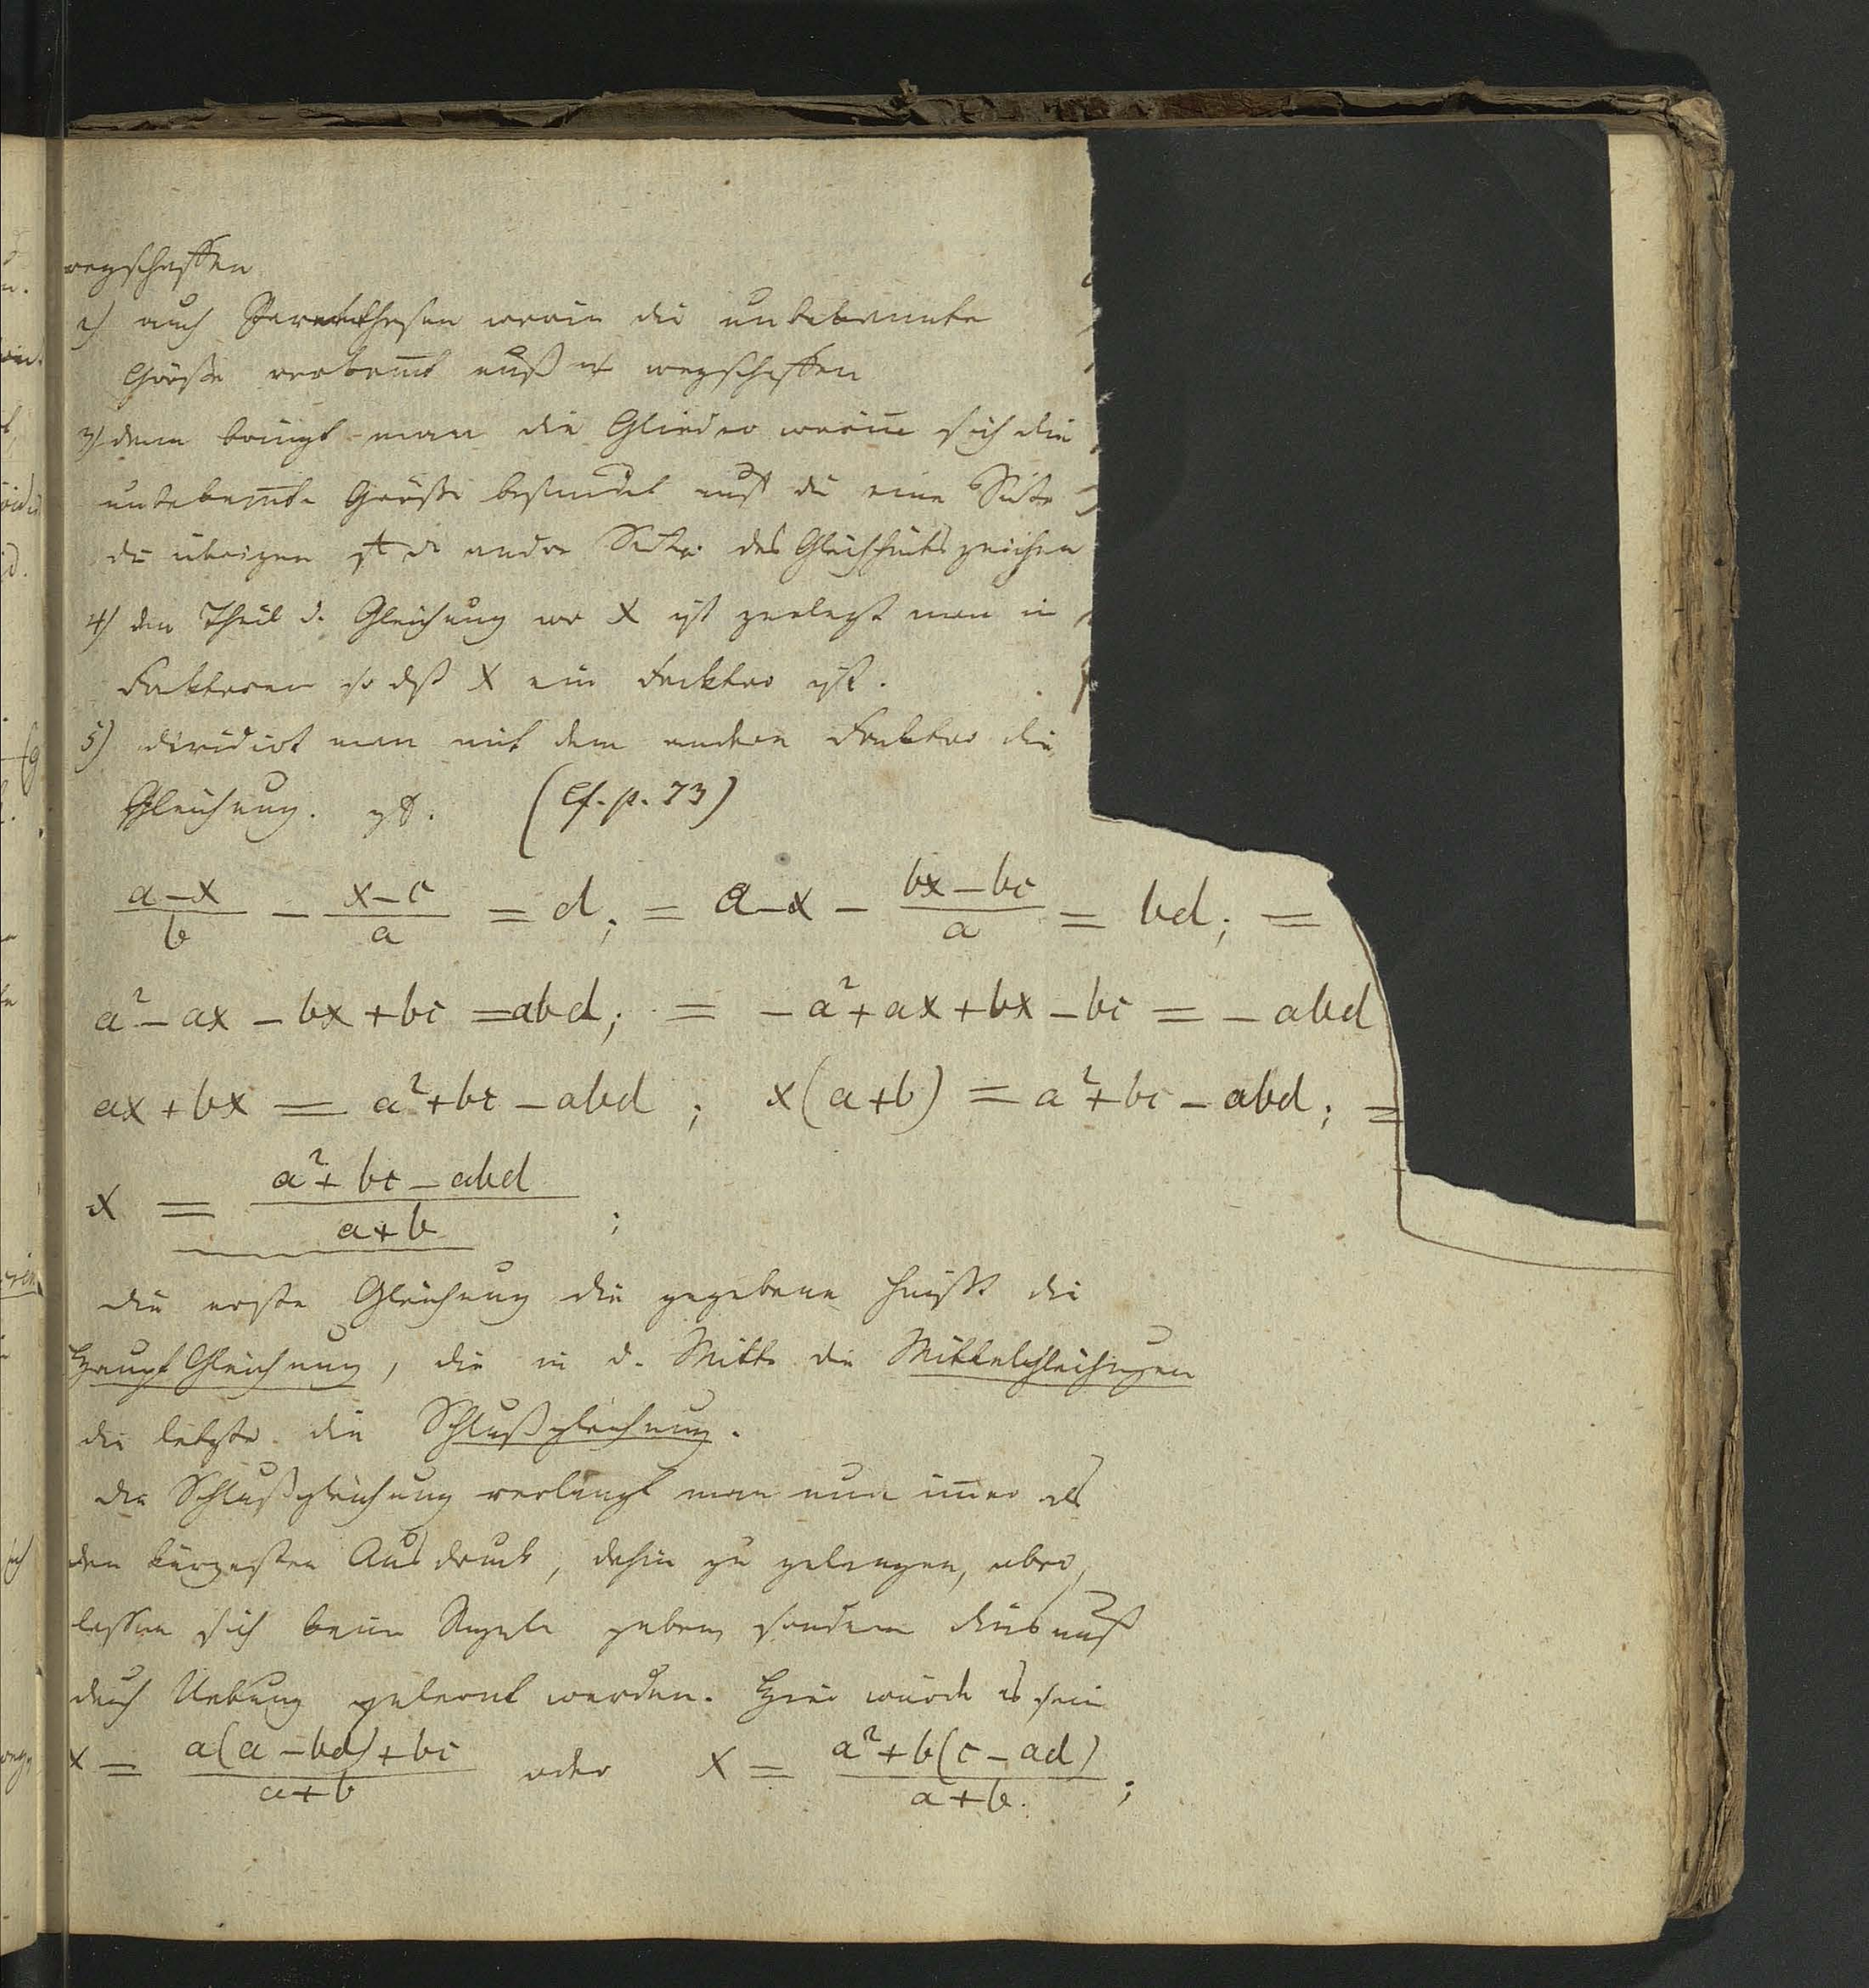 wegschaffen
2) auch Parenthesen worin die unbekannte
Größe vorkom̅t muß m wegschaffen
3) dann bringt man die Glieder worin̅ sich die
unbekan̅te Größe befindet auf die eine Seite
die übrigen auf die andre Seite des Gleichheitszeichen
4) den Theil d. Gleichung wo x ist zerlegt man in
Faktoren so dß x ein Facktor ist.
5) dividirt man mit dem andern Faktor die
Gleichung. (Cf. p. 73)
a-x/b - x-c/a = d; = a-x - bx-bc/a = bd; =
a²-ax-bx+bc = abd; = -a²+ax+bx-bc = -abd
ax+bx = a²+bc-abd; x(a+b) = a²+bc-abd; =
x = a²+bc-abd/a+b;
die erste Gleichung die gegebene heißt die
Haupt Gleichung, die in d. Mitte die Mittelgleichungen
die letzte die Schlußgleichung.
Die Schlußgleichung verlangt man nun im̅er als
den kürzesten Ausdruck, dahin zu gelangen, aber
lassen sich keine Regeln geben, sondern dies muß
durch Uebung gelernt werden. Hier würde es sein
x = a(a-bd)+bc/a+b oder x = a²+b(c-ad)/a+b;